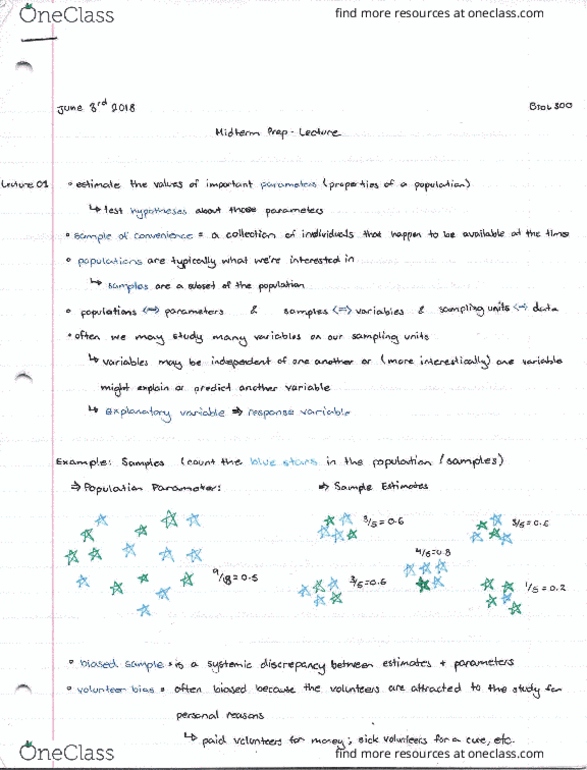 OneClass
find more resources at oneclass.com
June 3rd 2018
BIOL 300
Midterm Prep - Lecture
Lecture 01
• estimate the values of important parameters (properties of a population)
↳ test hypotheses about those parameters
• sample of convenience = a collection of individuals that happen to be available at the time
• populations are typically what we're interested in
↳ samples are a subset of the population
• populations ⟺ parameters & samples ⟺ variables & sampling units ⟺ data
• often we may study many variables on our sampling units
↳ variables may be independent of one another or (more interestically) one variable
might explain or predict another variable
↳ explanatory variable ⇒ response variable
Example: Samples (count the blue stars in the population / samples)
⇒ Population Parameter: ⇒ Sample Estimates
3/5 = 0.6
3/5 = 0.6
4/5 = 0.8
9/18 = 0.5
3/5 = 0.6
1/5 = 0.2
• biased sample • is a systemic discrepancy between estimates + parameters
• volunteer bias • often biased because the volunteers are attracted to the study for
personal reasons
↳ paid volunteers for money; sick volunteers for a cure, etc.
OneClass
find more resources at oneclass.com